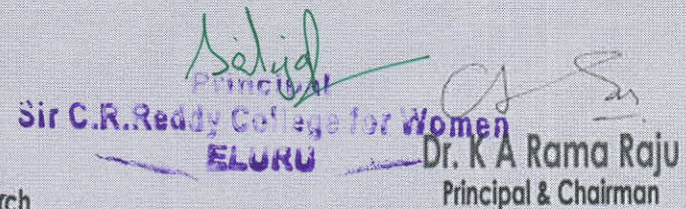 Principal
Sir C.R.Reddy College for Women
ELURU
Dr. K A Rama Raju
Principal & Chairman
rch